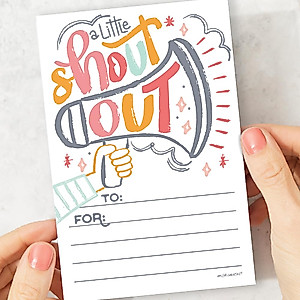 a little
shout
OUT
TO:
FOR: